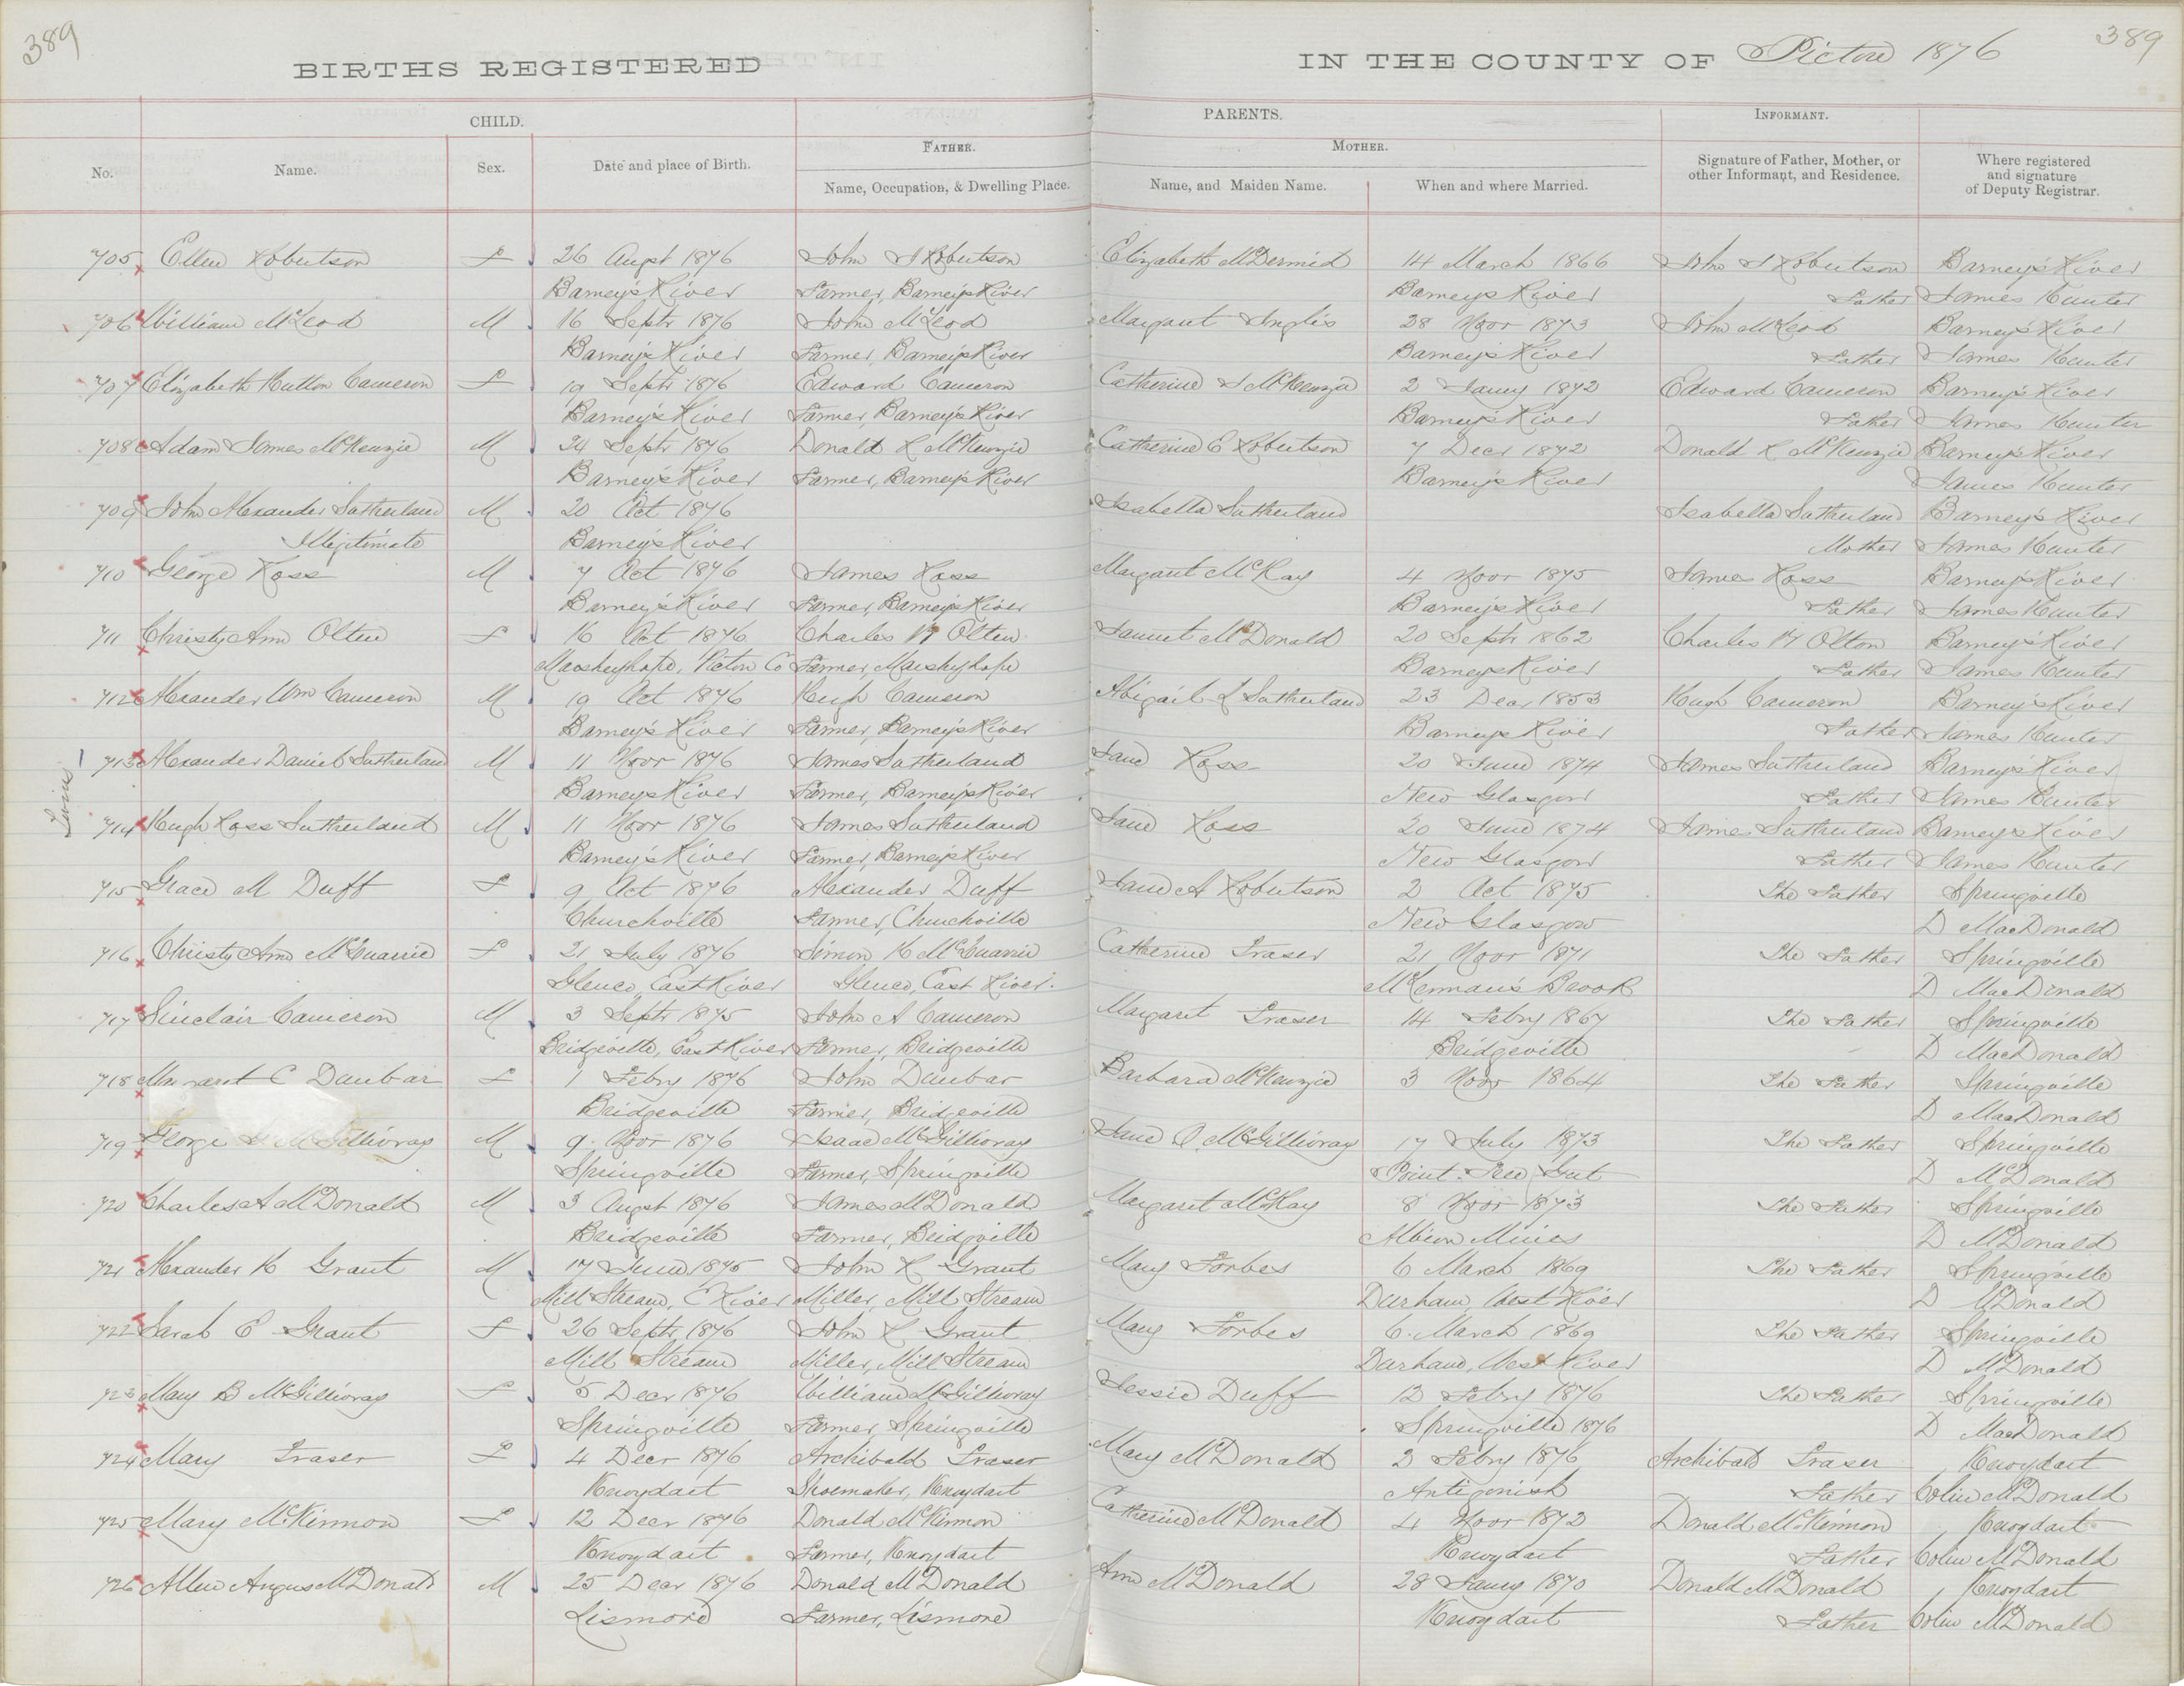 389
389
BIRTHS REGISTERED
IN THE COUNTY OF Pictou 1876
CHILD.
PARENTS.
INFORMANT.
FATHER.
MOTHER.
No.
Name.
Sex.
Date and place of Birth.
Name, Occupation, & Dwelling Place.
Name, and Maiden Name.
When and where Married.
Signature of Father, Mother, or
other Informant, and Residence.
Where registered
and signature
of Deputy Registrar.
705 Ellen Robertson F 26 Augst 1876 John Robertson Elizabeth McDermid 14 March 1866 John Robertson Barney's River
Barney's River Farmer, Barney's River Barney's River Father James Hunter
706 William McLeod M 16 Septr 1876 John McLeod Margaret Inglis 28 Novr 1873 John McLeod Barney's River
Barney's River Farmer, Barney's River Barney's River Father James Hunter
707 Elizabeth Hutton Cameron F 19 Septr 1876 Edward Cameron Catherine McKenzie 2 Jany 1872 Edward Cameron Barney's River
Barney's River Farmer, Barney's River Barney's River Father James Hunter
708 Adam James McKenzie M 24 Septr 1876 Donald R McKenzie Catherine E Robertson 7 Decr 1872 Donald R McKenzie Barney's River
Barney's River Farmer, Barney's River Barney's River James Hunter
709 John Alexander Sutherland M 20 Oct 1876 Isabella Sutherland Isabella Sutherland Barney's River
Illegitimate Barney's River Mother James Hunter
710 George Ross M 7 Oct 1876 James Ross Margaret McKay 4 Novr 1875 James Ross Barney's River
Barney's River Farmer, Barney's River Barney's River Father James Hunter
711 Christy Ann Olten F 16 Oct 1876 Charles Olten Jannet McDonald 20 Septr 1862 Charles Olton Barney's River
Marshyhope, Pictou Co Farmer, Marshyhope Barney's River Father James Hunter
712 Alexander Wm Cameron M 19 Oct 1876 Hugh Cameron Abigail Sutherland 23 Decr 1853 Hugh Cameron Barney's River
Barney's River Farmer, Barney's River Barney's River Father James Hunter
Twins
713 Alexander Daniel Sutherland M 11 Novr 1876 James Sutherland Jane Ross 20 June 1874 James Sutherland Barney's River
Barney's River Farmer, Barney's River New Glasgow Father James Hunter
714 Hugh Ross Sutherland M 11 Novr 1876 James Sutherland Jane Ross 20 June 1874 James Sutherland Barney's River
Barney's River Farmer, Barney's River New Glasgow Father James Hunter
715 Grace M Duff F 9 Oct 1876 Alexander Duff Jane A Robertson 2 Oct 1875 The Father Springville
Churchville Farmer, Churchville New Glasgow D MacDonald
716 Christy Ann McQuarrie F 21 July 1876 Simon H McQuarrie Catherine Fraser 21 Novr 1871 The Father Springville
Glenco, East River Glenco, East River. Brook D MacDonald
717 Sinclair Cameron M 3 Septr 1875 John A Cameron Margaret Fraser 14 Febry 1867 The Father Springville
Bridgeville, East River Farmer, Bridgeville Bridgeville D MacDonald
718 Margaret C Dunbar F 1 Febry 1876 John Dunbar Barbara McKenzie 3 Novr 1864 The Father Springville
Bridgeville Farmer, Bridgeville D MacDonald
719 George McGillivray M 9 Novr 1876 Isaac McGillivray Jane McGillivray 17 July 1873 The Father Springville
Springville Farmer, Springville Point Gut D McDonald
720 Charles A McDonald M 3 Augst 1876 James McDonald Margaret McKay 8 Novr 1873 The Father Springville
Bridgeville Farmer, Bridgville Albion Mines D McDonald
721 Alexander H Grant M 17 June 1875 John R Grant Mary Forbes 6 March 1869 The Father Springville
Mill Stream, E River Miller, Mill Stream Durham, West River D McDonald
722 Sarah E Grant F 26 Septr 1876 John R Grant Mary Forbes 6. March 1869 The Father Springville
Mill Stream Miller, Mill Stream Durham, West River D McDonald
723 Mary B McGillivray F 5 Decr 1876 William McGillivray Jessie Duff Febry 1876 The Father Springville
Springville Farmer, Springville Springville 1876 D MacDonald
724 Mary Fraser F 4 Decr 1876 Archibald Fraser Mary McDonald Febry 1876 Archibald Fraser Knoydart
Knoydart Shoemaker, Knoydart Antigonish Father Colin McDonald
725 Mary McKinnon F 12 Decr 1876 Donald McKinnon Catherine McDonald 4 Novr 1872 Donald McKinnon Knoydart
Knoydart Farmer, Knoydart Knoydart Father Colin McDonald
726 Allen Angus McDonald M 25 Decr 1876 Donald McDonald Ann McDonald 28 Jany 1870 Donald McDonald Knoydart
Lismore Farmer, Lismore Knoydart Father Colin McDonald